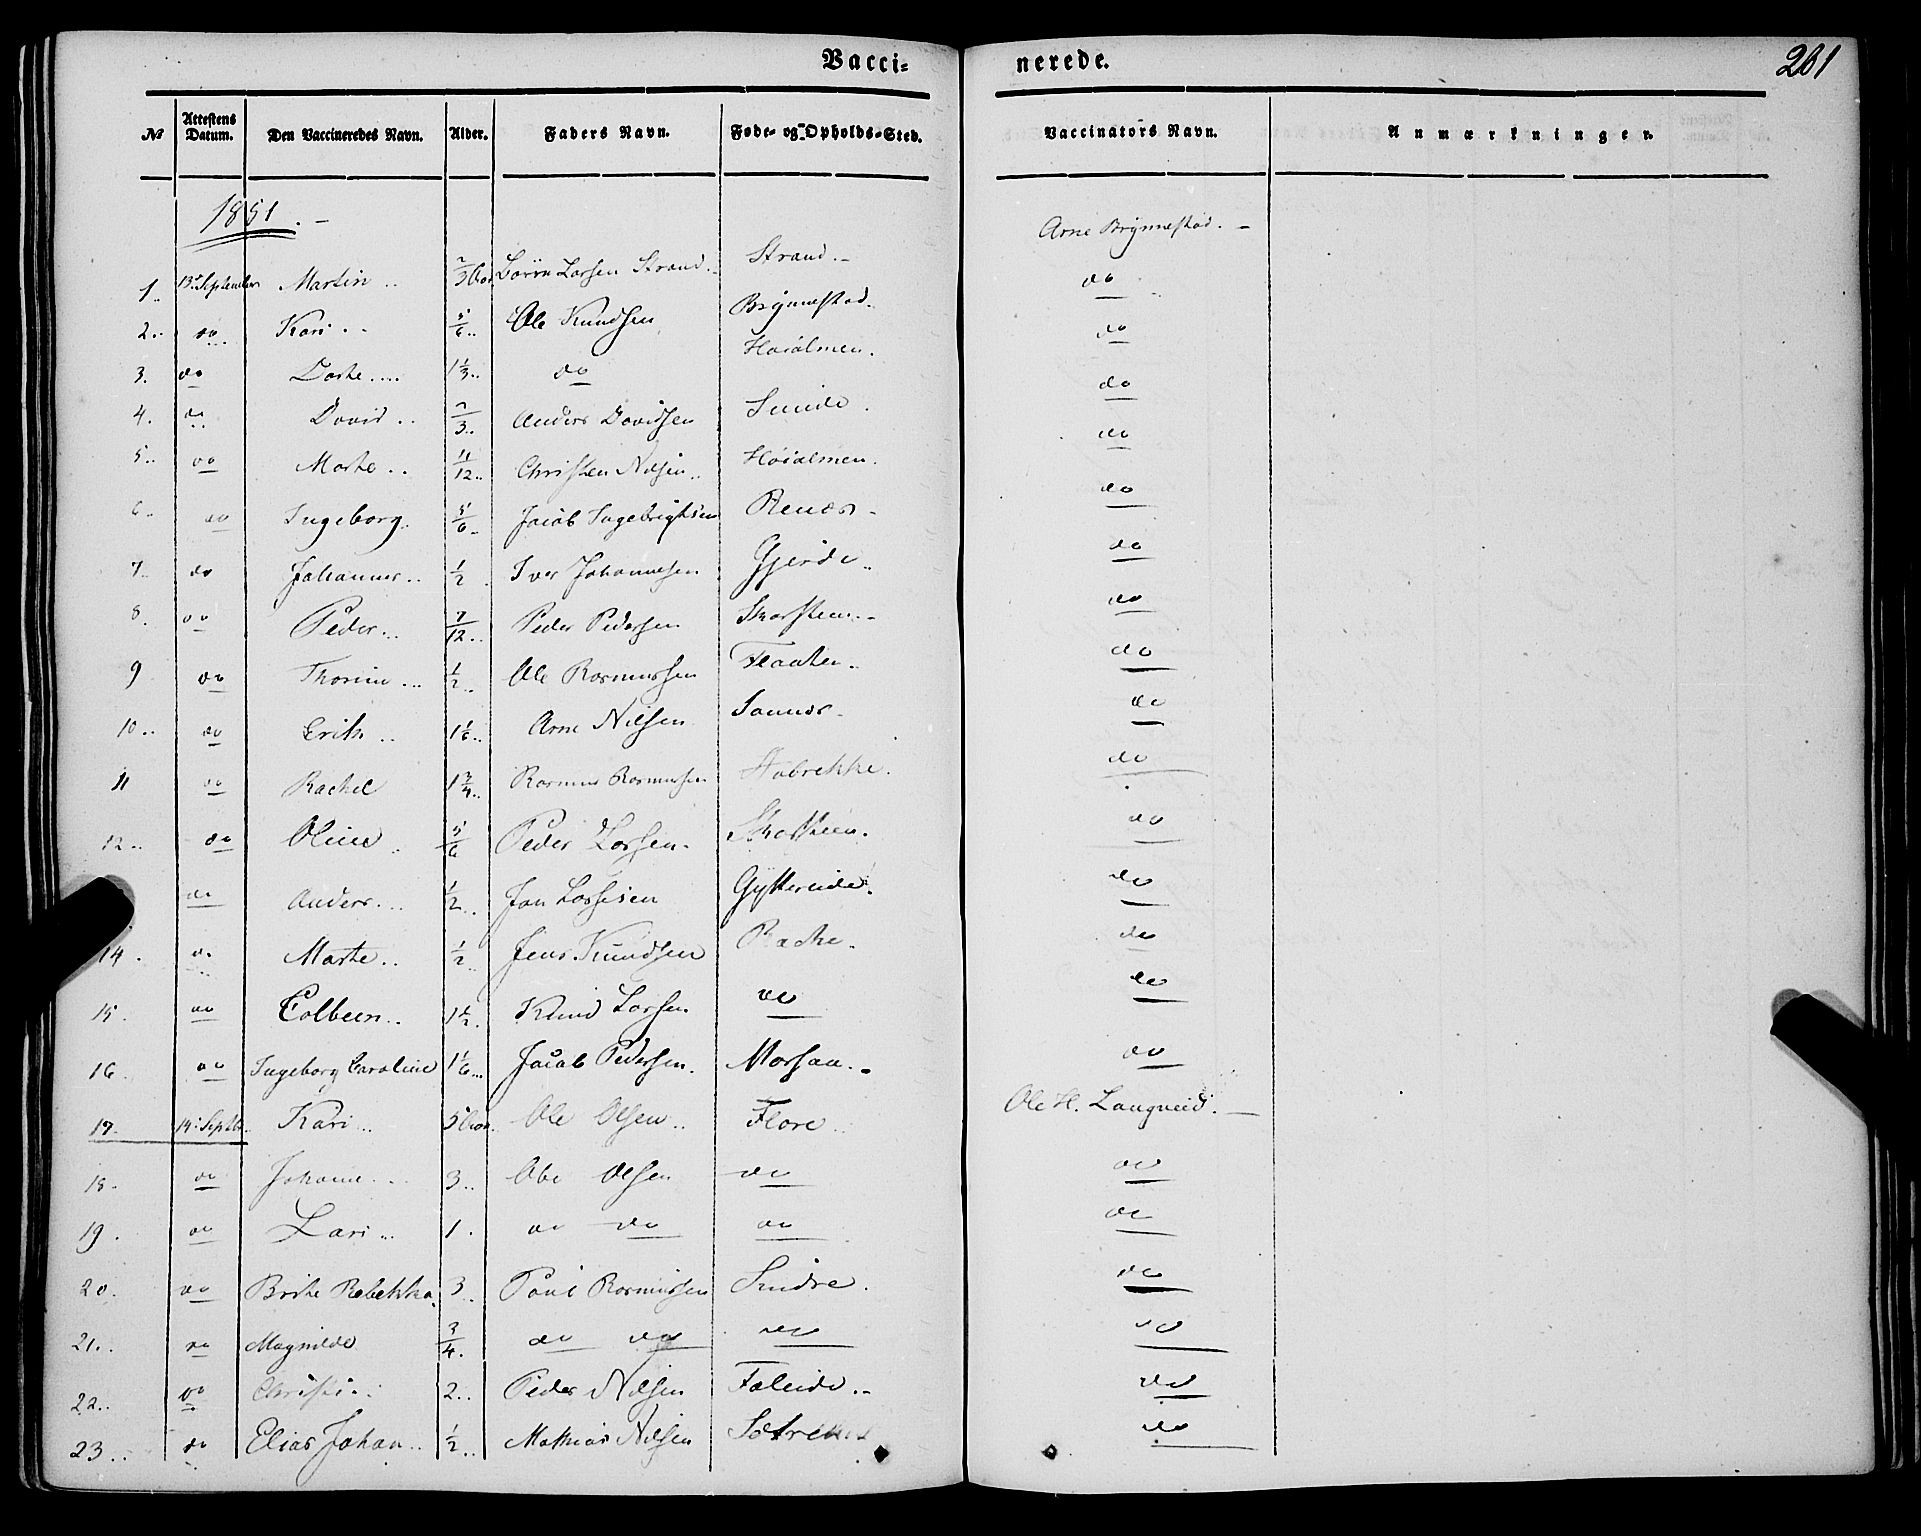 Vacci- nerede. 261
№ Attestens Datum. Den Vaccineredes Navn. Alder. Faders Navn. Føde- og Opholds-Sted. Vaccinators Navn. Anmærkninger.
1851. - Arne Brynnestad. -
1.. 13de September Martin .. 2/3 Larsen Strand.. Strand.- do
2.. do Kari .. 5/6.. Ole Knudsen Brynnestad. do
3. do Dorthe.... 1 1/3.. do Hoialmen. do
4. do David .. 2/3.. Anders Davidsen Sunde. do
5.. do Marthe .. 11/12.. Christen Nilsen.. Høialmen. do
6.. do Ingeborg. 5/6.. Jacob Ingebrigtsen - do
7.. do Johannes.. 1/2. Iver Johannesen Gjerde.. do
8. do Peder... 7/12.. Peder Pedersen Skarsteen.- do
9 do ... 1/2.. Ole Rasmussen Flaaten.. do
10.. do Erik .. 1 1/6.. Arne Nilsen - do
11 do Rachel 1 3/4.. Rasmus Rasmussen Støbrekke. do
12.. do Oline. 5/6 Peder Larsen. Skarsteen. do
do Anders... 1/2.. Jon Gyttereide. do
14. do Marte.. 1/2.. Jens Knudsen Rache. do
15. do Colbeen.. 1 1/2. Knud Larsen do do
16. do Ingeborg Caroline 1 1/6... Jacob Pedersen. .- do
17. 14de Septbr. Kari... 5 Ole Olsen.. Flore.. Ole H. . -
18. do Johanne... 3.. Ole Olsen do do
19. do Lari... 1. do do do do
20. do Brithe Rebekka. 3.. Paul Rasmussen Sindre. do
21.. do Magnilde 3/4. do do do do
22.. do Christi.. 2.. Peder Nilsen Faleide.- do
23.. do Elias Johan.. 1/2.. Mathias Nilsen do